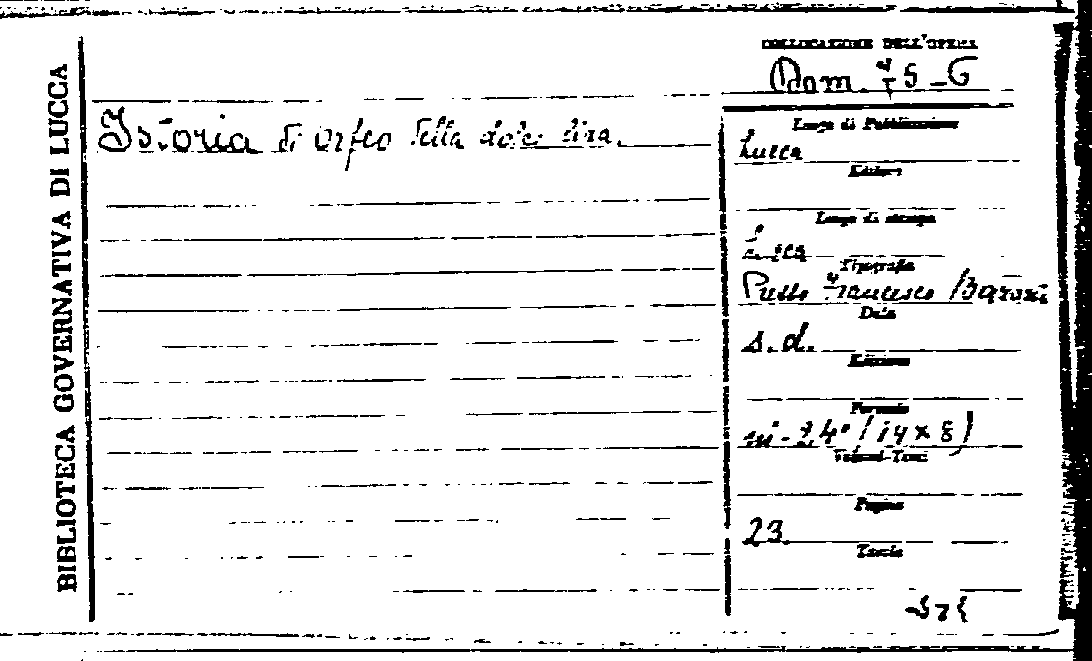 BIBLIOTECA GOVERNATIVA DI LUCCA
COLLOCAZIONE DELL'OPERA
Istoria di Orfeo della dolce lira.
Luogo di Pubblicazione
Lucca
Editore
Luogo di stampa
Lucca
Tipografia
Presso Francesco Baroni
Data
s.d.
Edizione
Formato
in-24° (14x8)
Volumi-Tomi
Pagine
23.
Tavole